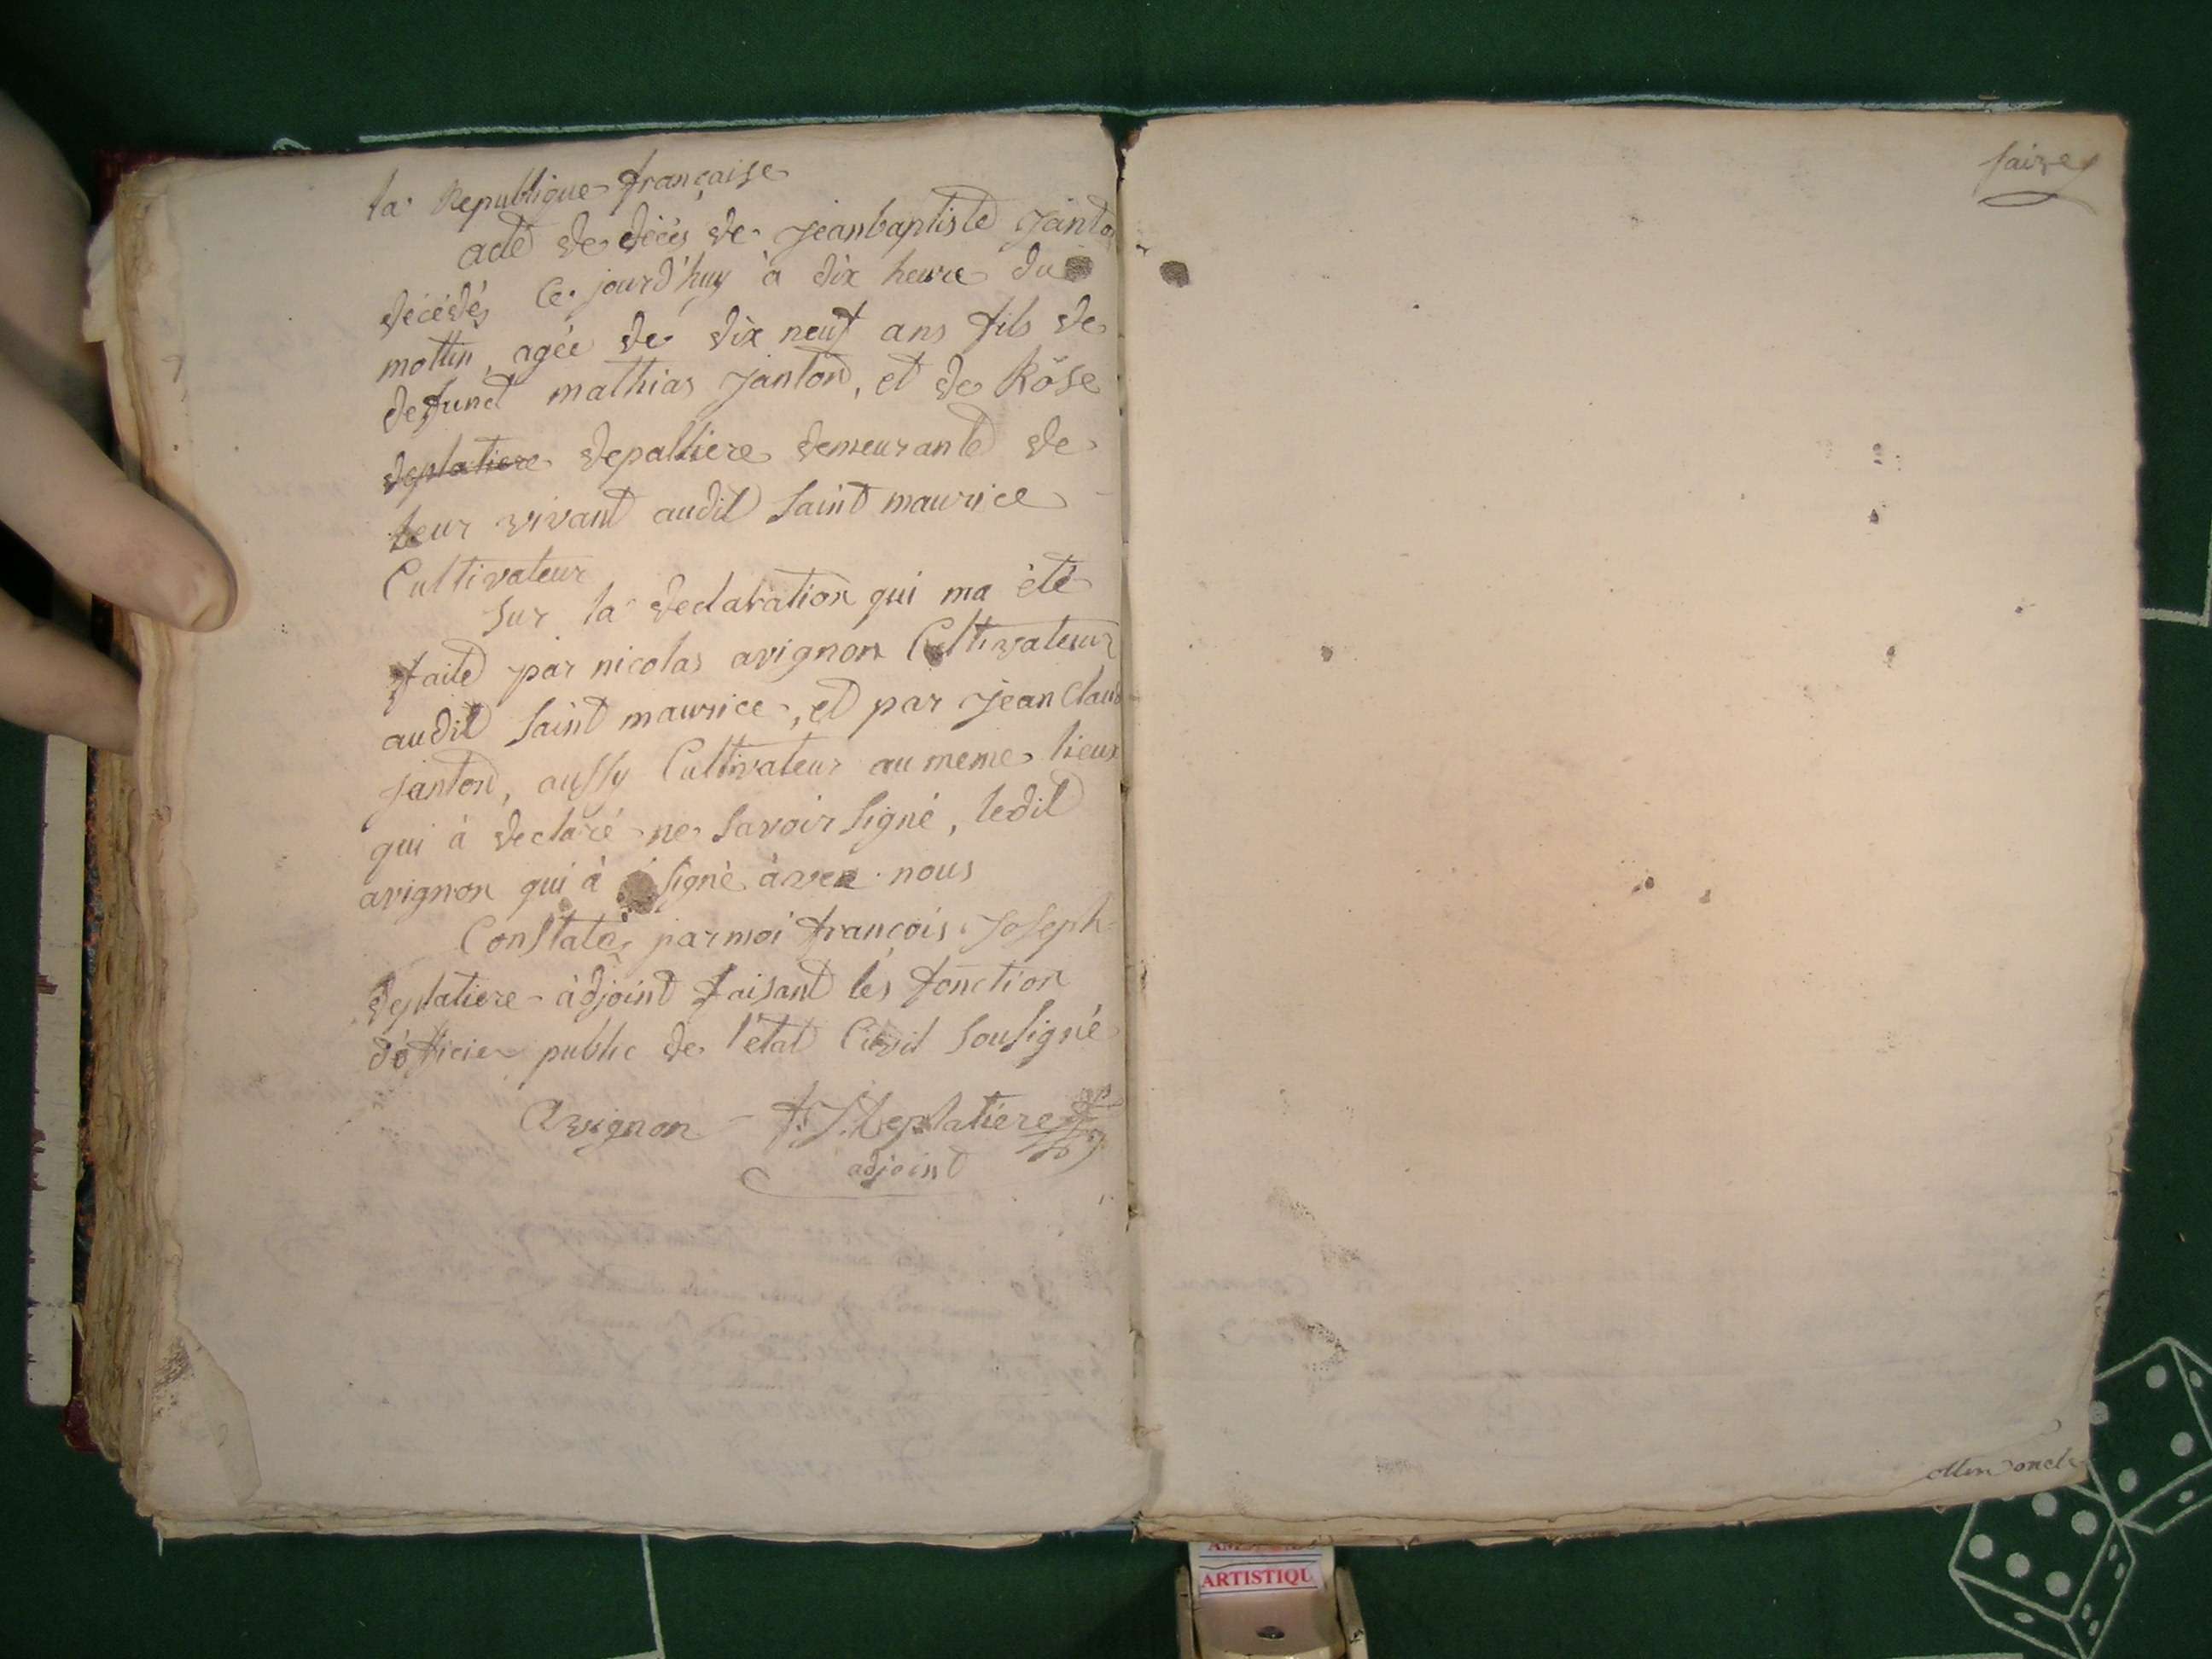 la Republique française
acte de décès de jeanbaptiste janton
décédés ce jourd'huy à dix heure du
mattin, agée de dix neuf ans fils de
defunct mathias janton, et de Rose
deplatiere depaltiere demeurante de
leur vivant audit saint maurice
Cultivateur
Sur la declaration qui ma été
faite par nicolas avignon Cultivateur
audit saint maurice, et par jean Claud
janton, aussy Cultivateur au meme lieux
qui à declaré ne savoir signé, ledit
avignon qui à signé àvec nous
Constaté, par moi françois joseph
deplatiere adjoint faisant lés fonction
d'officier public de l'état Civil sousigné
Avignon f. j. deplatiere
adjoint
saize
ARTISTIQU